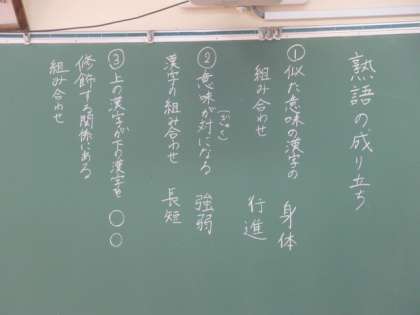 熟語の成り立ち
①似た意味の漢字の
組み合わせ
身体
行進
②意味が対になる
(ぎゃく)
漢字の組み合わせ
強弱
長短
③上の漢字が下の漢字を
修飾する関係にある
組み合わせ
○○